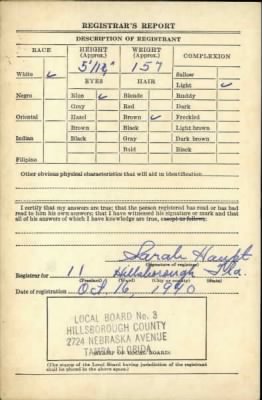 REGISTRAR'S REPORT
DESCRIPTION OF REGISTRANT
RACE HEIGHT (Approx.) WEIGHT (Approx.) COMPLEXION
5' 157
White ✓ EYES HAIR Sallow
Light ✓
Negro Blue ✓ Blonde Ruddy
Gray Red Dark
Oriental Hazel Brown ✓ Freckled
Brown Black Light brown
Indian Black Gray Dark brown
Bald Black
Filipino
Other obvious physical characteristics that will aid in identification
I certify that my answers are true; that the person registered has read or has had
read to him his own answers; that I have witnessed his signature or mark and that
all of his answers of which I have knowledge are true, except as follows:
Sarah Haupt
(Signature of registrar)
Registrar for 11 Hillsborough Fla.
(Precinct) (Ward) (City or county) (State)
Date of registration Oct. 16, 1940
LOCAL BOARD No. 3
HILLSBOROUGH COUNTY
2724 NEBRASKA AVENUE
TAMPA, FLORIDA
(STAMP OF LOCAL BOARD)
(The stamp of the Local Board having jurisdiction of the registrant
shall be placed in the above space.)